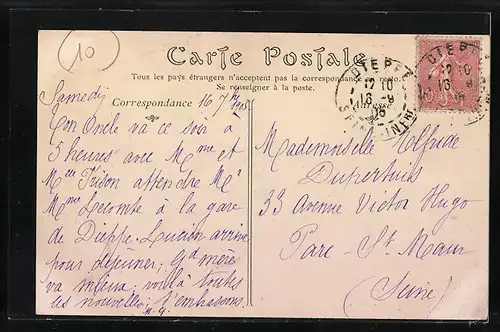 10
Carte Postale
Tous les pays étrangers n'acceptent pas la correspondance au recto.
Se renseigner à la poste.
Correspondance
Adresse
DIEPPE
12 10
16 - 9
05
Samedi 16 7bre 05
Ton Oncle va ce soir à
5 heures avec Mme et
Mlle Frison attendre Mr
Mme Lecomte à la gare
de Dieppe. Lucien arrive
pour déjeuner; Gd mère
va mieux; voilà toutes
les nouvelles; t'embrassons.
M. G.
Mademoiselle Elfride
Dupertuis
33 Avenue Victor Hugo
Parc - St Maur
(Seine)